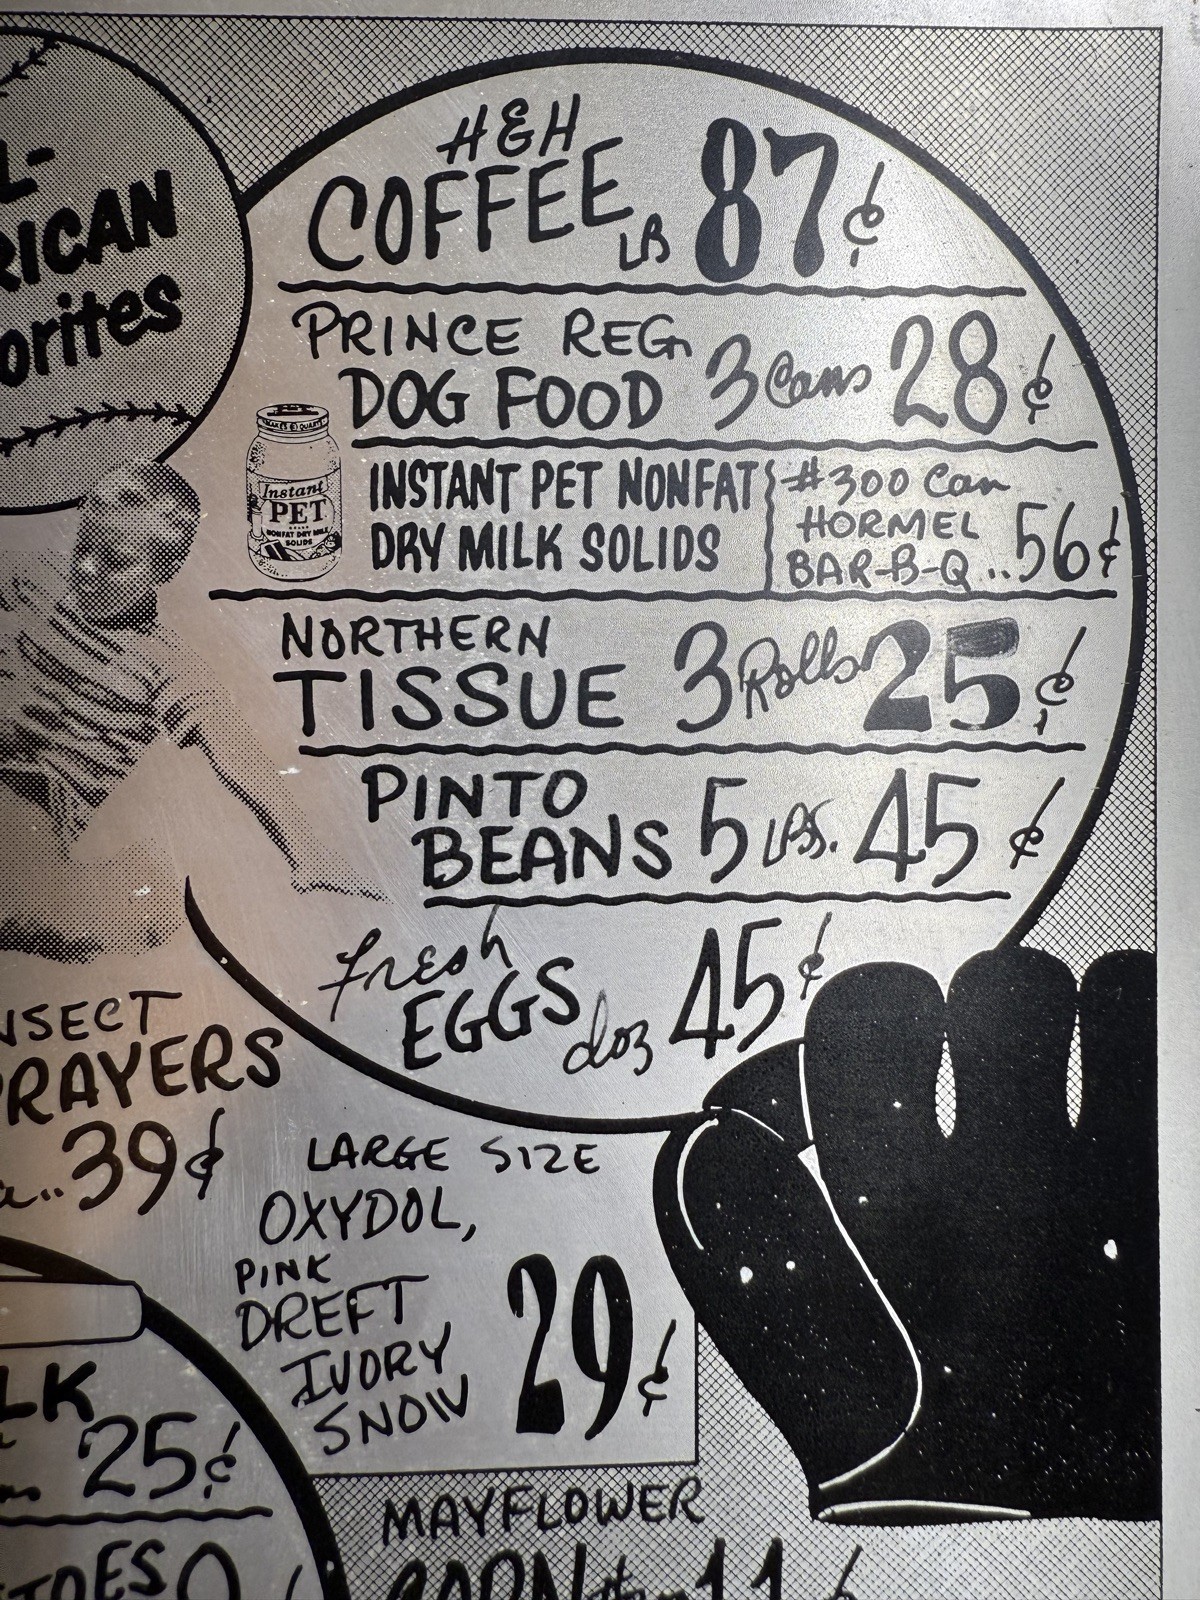 H&H
COFFEE LB 87¢
PRINCE REG.
DOG FOOD 3 Cans 28¢
MAKES 8 QUARTS
Instant
PET
NONFAT DRY MILK
SOLIDS
INSTANT PET NONFAT
DRY MILK SOLIDS
#300 Can
HORMEL
BAR-B-Q..56¢
NORTHERN
TISSUE 3 Rolls 25¢
PINTO
BEANS 5 LBS. 45¢
fresh
EGGS doz 45¢
39¢
LARGE SIZE
OXYDOL,
PINK
DREFT
IVORY
SNOW
29¢
25¢
MAYFLOWER